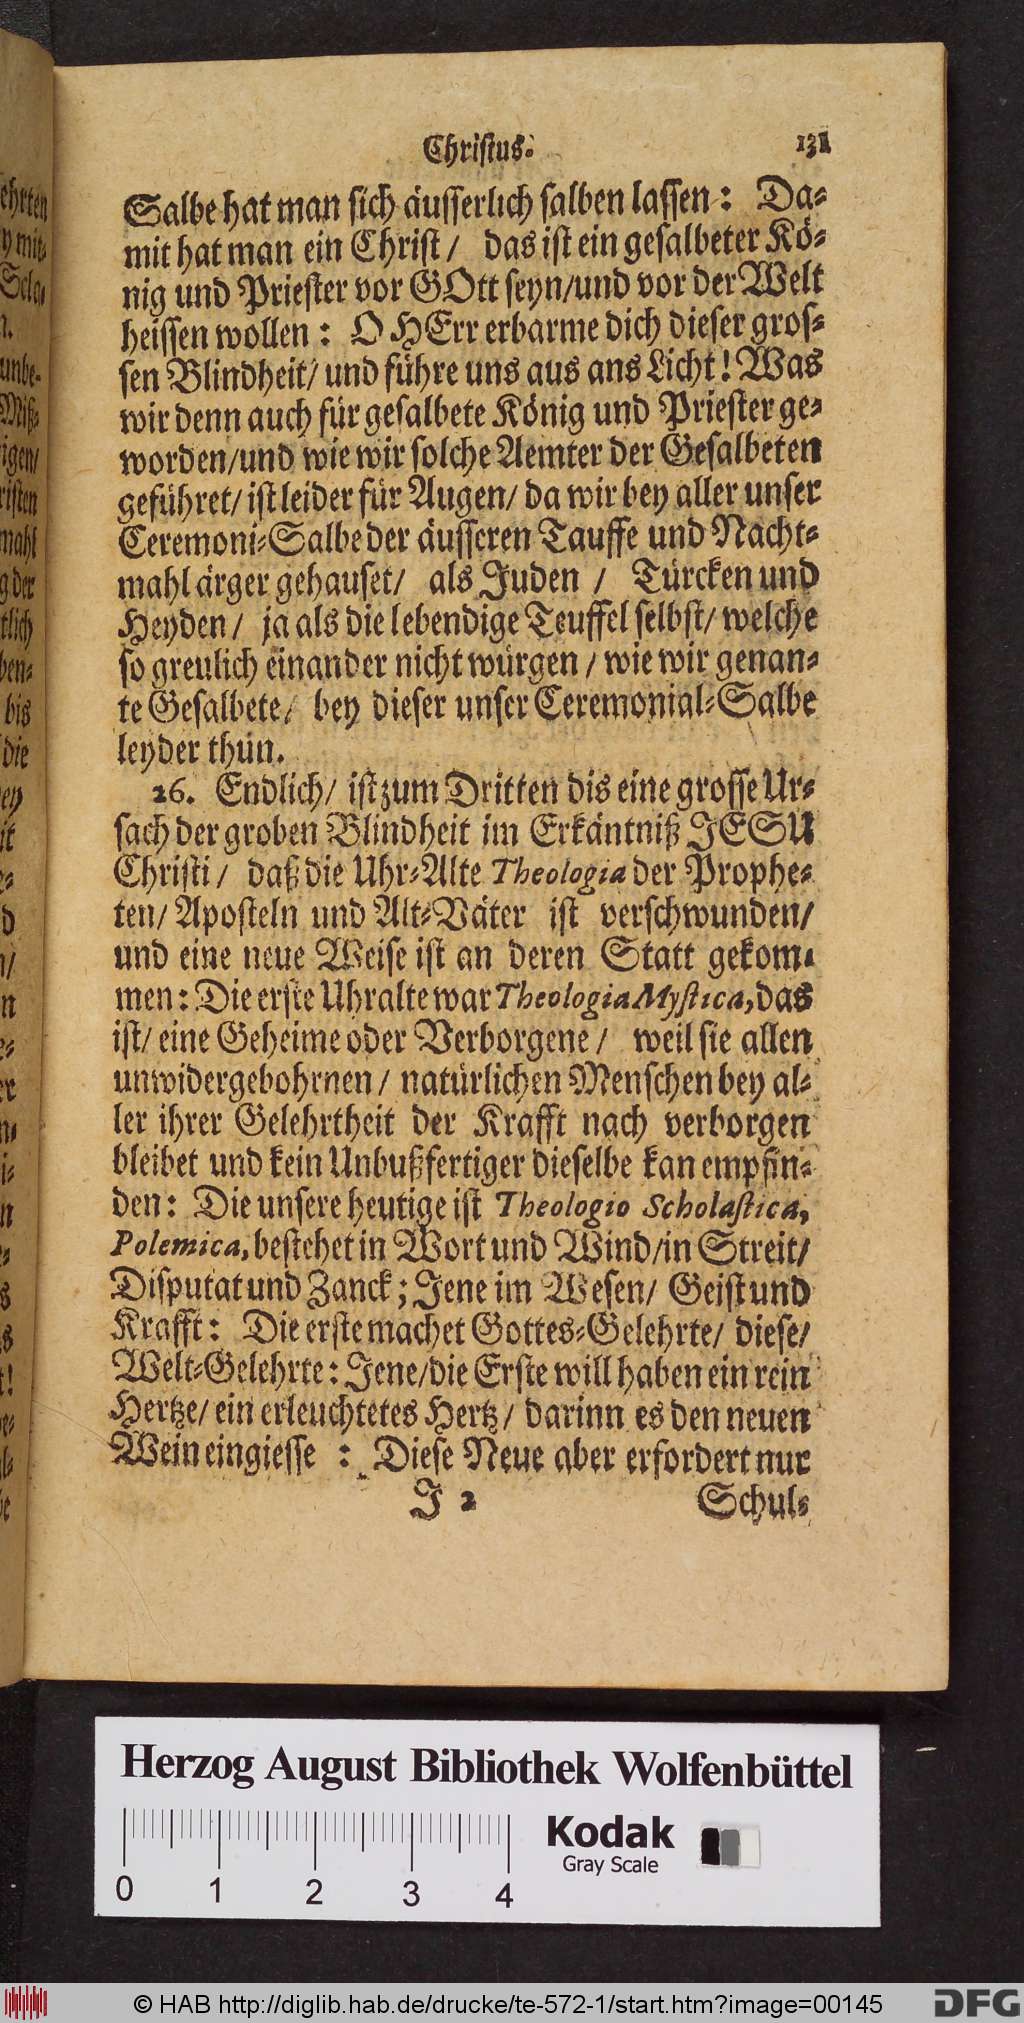 Christus. 131
Salbe hat man sich äusserlich salben lassen: Da-
mit hat man ein Christ / das ist ein gesalbeter Kö-
nig und Priester vor GOtt seyn/und vor der Welt
heissen wollen: O HErr erbarme dich dieser gros-
sen Blindheit/ und führe uns aus ans Licht! Was
wir denn auch für gesalbete König und Priester ge-
worden/und wie wir solche Aemter der Gesalbeten
geführet/ ist leider für Augen/ da wir bey aller unser
Ceremoni-Salbe der äusseren Tauffe und Nacht-
mahl ärger gehauset/ als Juden / Türcken und
Heyden/ ja als die lebendige Teuffel selbst/ welche
so greulich einander nicht würgen / wie wir genan-
te Gesalbete/ bey dieser unser Ceremonial-Salbe
leyder thun.
26. Endlich/ ist zum Dritten dis eine grosse Ur-
sach der groben Blindheit im Erkäntniß JESU
Christi / daß die Uhr-Alte Theologia der Prophe-
ten/ Aposteln und Alt-Väter ist verschwunden/
und eine neue Weise ist an deren Statt gekom-
men: Die erste Uhralte war Theologia Mystica, das
ist/ eine Geheime oder Verborgene / weil sie allen
unwidergebohrnen / natürlichen Menschen bey al-
ler ihrer Gelehrtheit der Krafft nach verborgen
bleibet und kein Unbußfertiger dieselbe kan empfin-
den: Die unsere heutige ist Theologio Scholastica,
Polemica, bestehet in Wort und Wind/in Streit/
Disputat und Zanck; Jene im Wesen/ Geist und
Krafft: Die erste machet Gottes-Gelehrte/ diese/
Welt-Gelehrte: Jene/die Erste will haben ein rein
Hertze/ ein erleuchtetes Hertz/ darinn es den neuen
Wein eingiesse : Diese Neue aber erfordert nur
J 2 Schul-
Herzog August Bibliothek Wolfenbüttel
0 1 2 3 4
Kodak
Gray Scale
© HAB http://diglib.hab.de/drucke/te-572-1/start.htm?image=00145
DFG